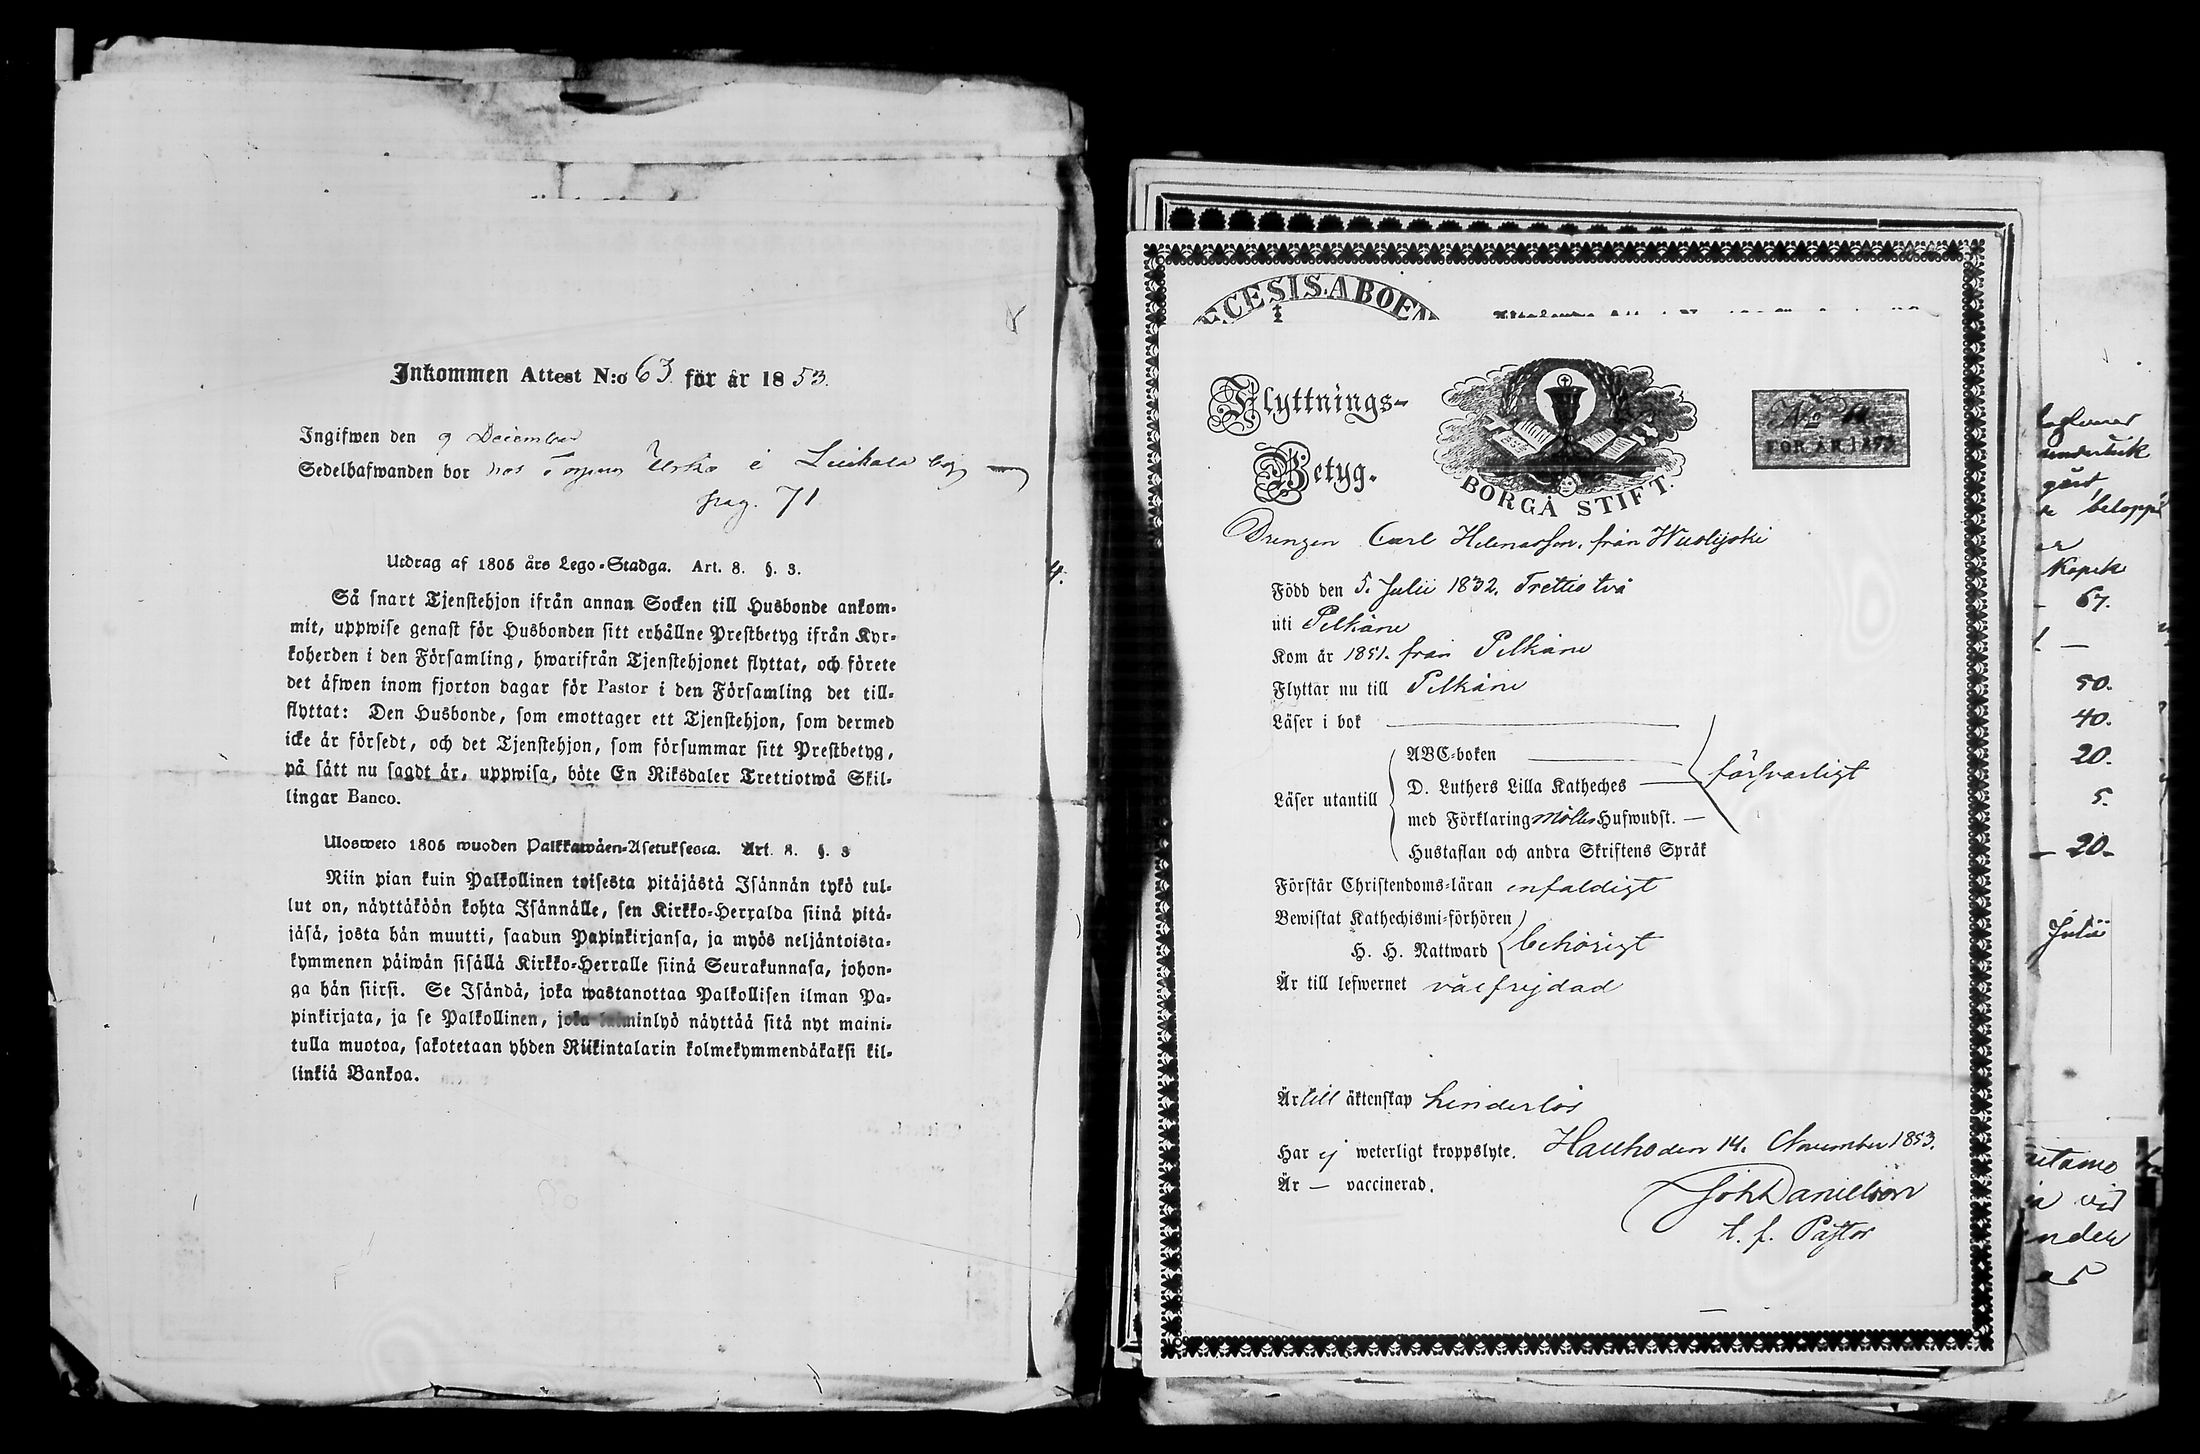 Inkommen Attest N:o 63 för år 1853.
Ingifwen den 9 December
Sedelhafwanden bor hos Torpar Urko i Luikala by
pag. 71
Utdrag af 1805 års Lego-Stadga. Art. 8. §. 3.
Så snart Tjenstehjon ifrån annan Socken till Husbonde ankom-
mit, uppwise genast för Husbonden sitt erhållne Prestbetyg ifrån Kyr-
koherden i den Församling, hwarifrån Tjenstehjonet flyttat, och förete
det äfwen inom fjorton dagar för Pastor i den Församling det till-
flyttat: Den Husbonde, som emottager ett Tjenstehjon, som dermed
icke är försedt, och det Tjenstehjon, som försummar sitt Prestbetyg,
på sätt nu sagdt är, uppwisa, böte En Riksdaler Trettiotwå Skil-
lingar Banco.
Ulosweto 1805 wuoden Palkkawäen-Asetuksesta. Art. 8. §. 3
Niin pian kuin Palkollinen toisesta pitäjästä Isännän tykö tul-
lut on, näyttäköön kohta Isännälle, sen Kirkko-Herralda siinä pitä-
jäsä, josta hän muutti, saadun Papinkirjansa, ja myös neljäntoista-
kymmenen päiwän sisällä Kirkko-Herralle siinä Seurakunnasa, johon-
ga hän siirsi. Se Isändä, joka wastanottaa Palkollisen ilman Pa-
pinkirjata, ja se Palkollinen, joka laiminlyö näyttää sitä nyt maini-
tulla muotoa, sakotetaan yhden Riikintalarin kolmekymmendäkaksi kil-
linkiä Bankoa.
4.
ECESIS.ABOEN
Flyttnings-
Betyg.
BORGÅ STIFT.
No
FÖR ÅR 1853
Drengen Carl Helenasson, från Wuolijoki
Född den 5. Julii 1832. Trettio två
uti Pelkäne
Kom år 1851. från Pelkäne
Flyttar nu till Pelkäne
Läser i bok
Läser utantill
ABC-boken
D. Luthers Lilla Katheches
med Förklaring Möllers Hufwudst.
Hustaflan och andra Skriftens Språk
försvarligt
Förstår Christendoms-läran enfaldigt
Bewistat Kathechismi-förhören
H. H. Nattward
behörigt
Är till lefwernet välfrejdad
Är till äktenskap hinderlös
Har ej weterligt kroppslyte. Hauho den 14. November 1853.
Är — vaccinerad.
Joh Danielsson
t. f. Pastor
gärd
belopp
Kopek
67.
50.
40.
20.
5.
20
Julii
vid